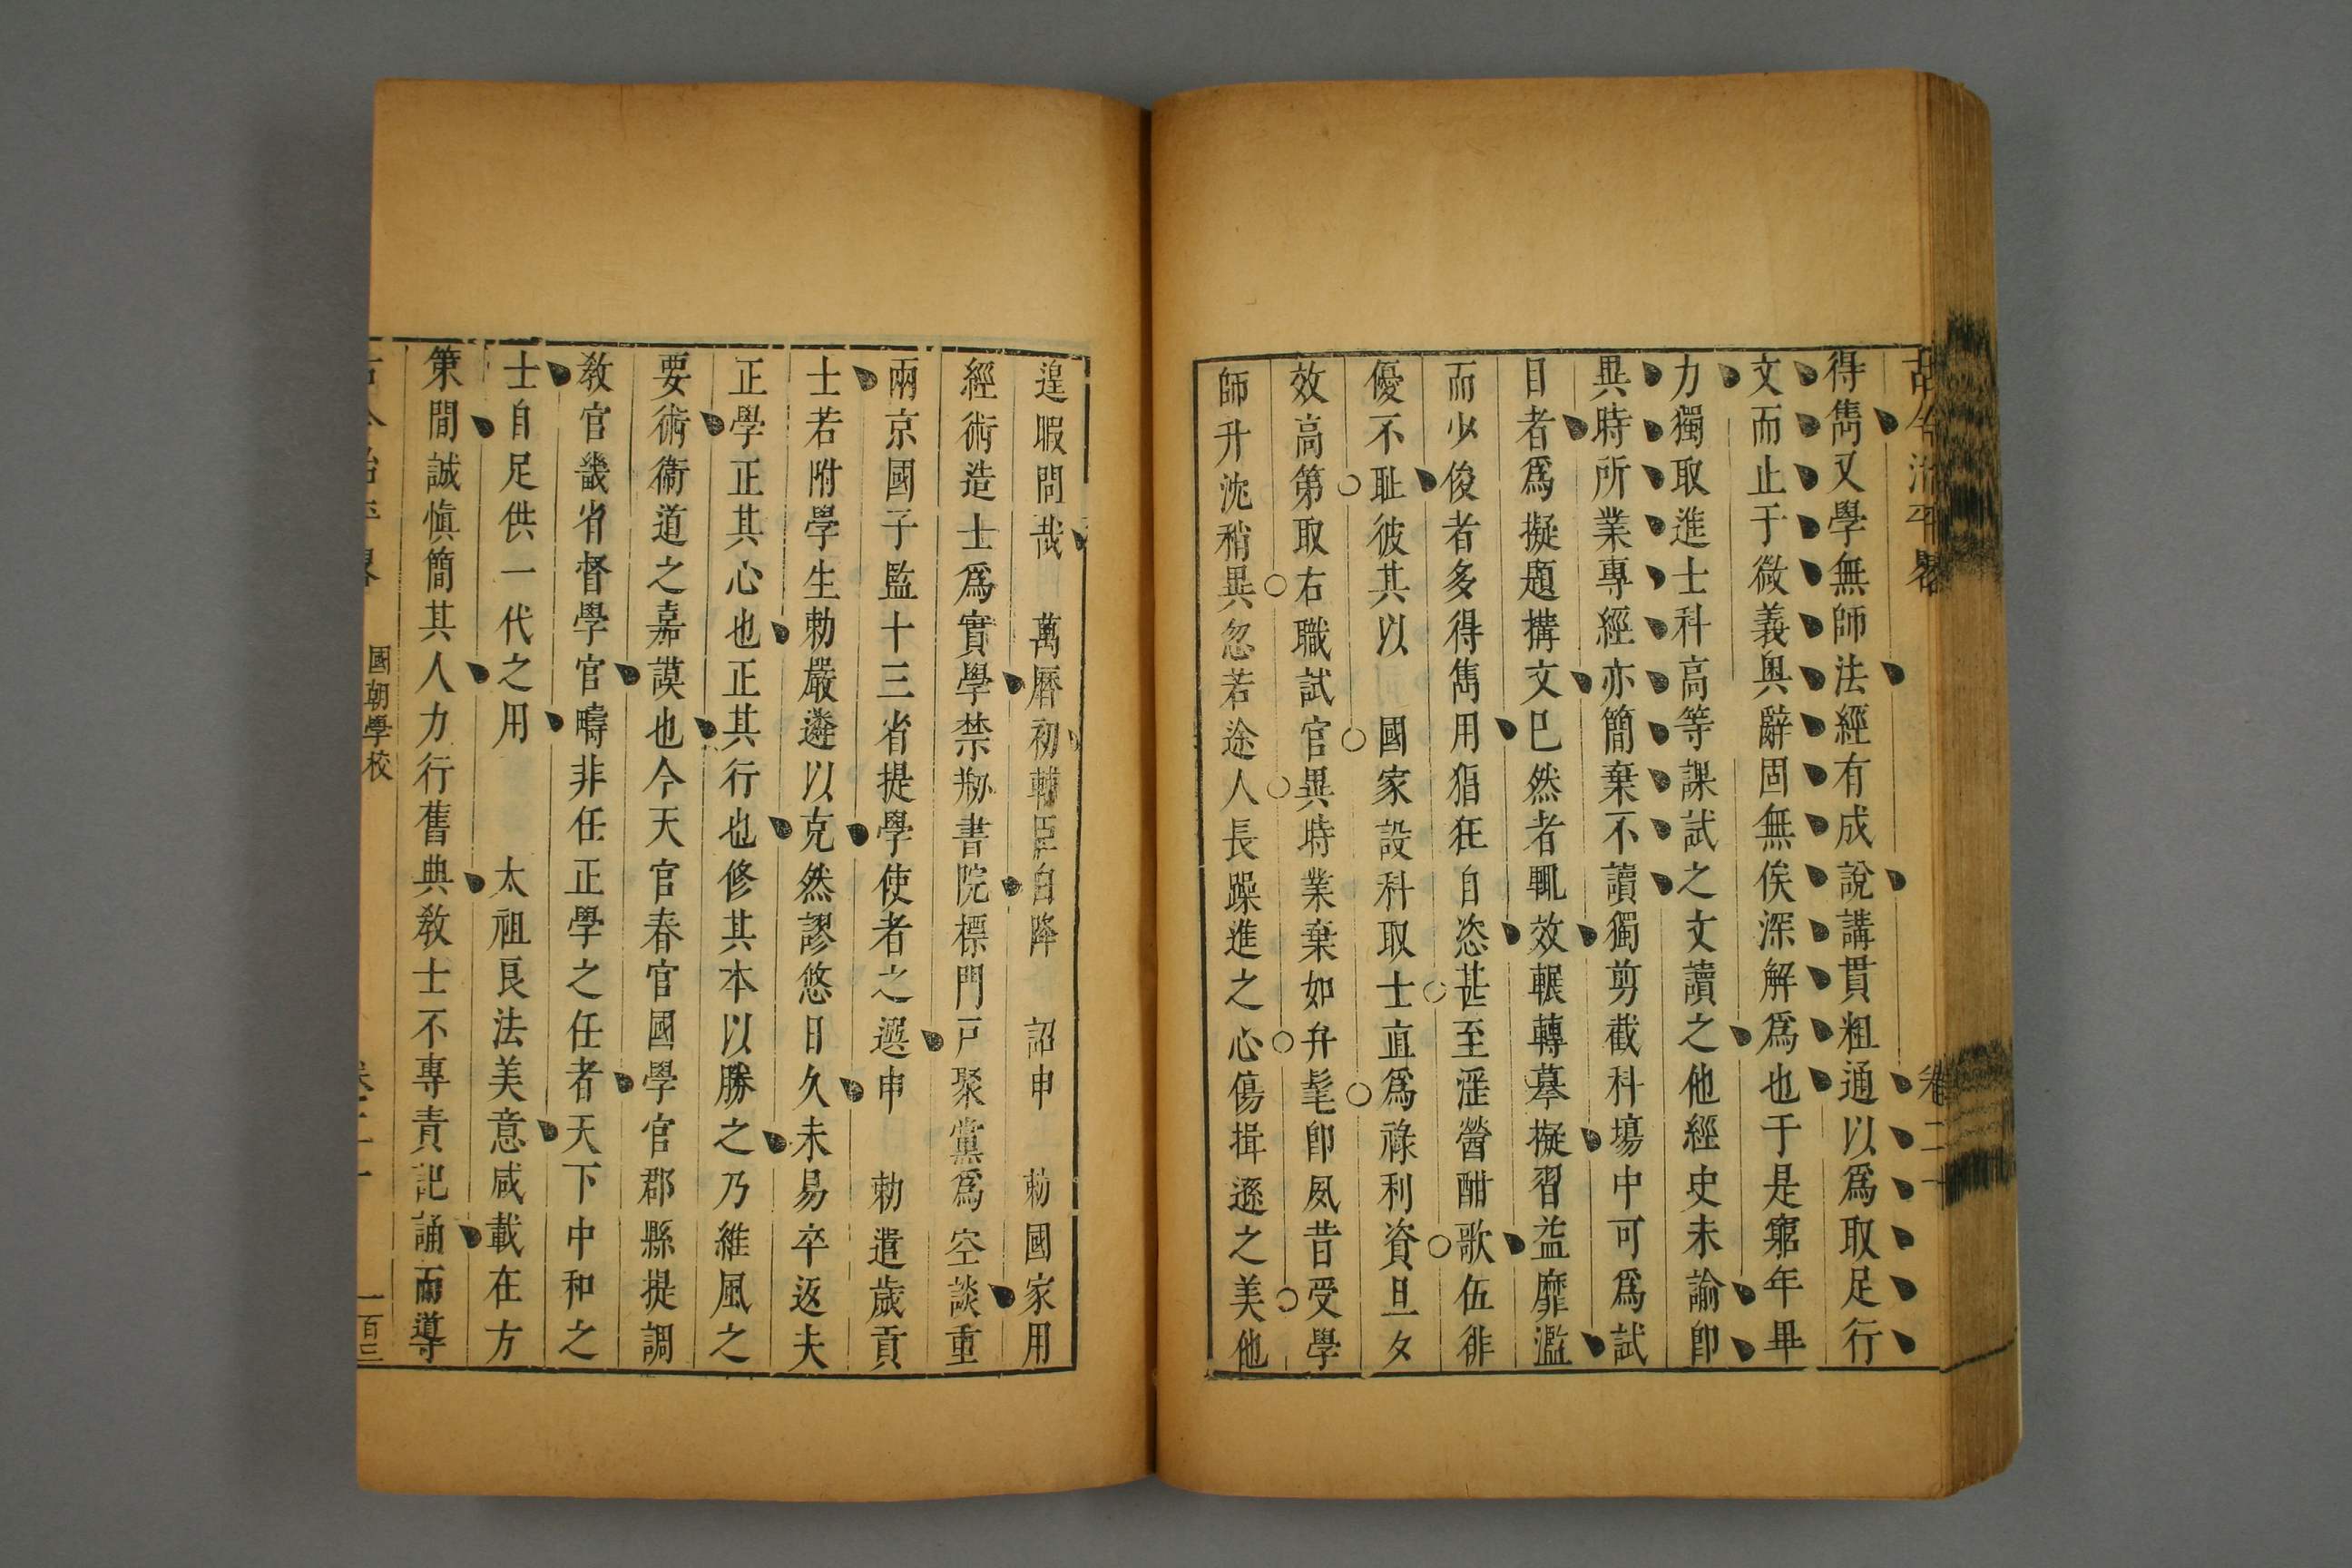 古今治平畧
卷二十
得雋又學無師法經有成說講貫粗通以爲取足行
文而止于微義奧辭固無俟深解爲也于是窮年畢
力獨取進士科高等課試之文讀之他經史未諭卽
異時所業專經亦簡棄不讀獨剪截科場中可爲試
目者爲擬題搆文已然者輒效輾轉摹擬習益靡濫
而少俊者多得雋用狷狂自恣甚至滛醟酣歌伍徘
優不耻彼其以國家設科取士直爲祿利資旦夕
效高第取右職試官異時業棄如弁髦卽夙昔受學
師升沈稍異忽若途人長躁進之心傷揖遜之美他
遑暇問哉萬曆初輔臣自降詔申勅國家用
經術造士爲實學禁剏書院標門戸聚黨爲空談重
兩京國子監十三省提學使者之選申勅遣歲貢
士若附學生勅嚴遴以克然謬悠日久未易卒返夫
正學正其心也正其行也修其本以勝之乃維風之
要術衞道之嘉謨也今天官春官國學官郡縣提調
敎官畿省督學官疇非任正學之任者天下中和之
士自足供一代之用太祖良法美意咸載在方
策間誠愼簡其人力行舊典敎士不專責記誦而導
國朝學校
一百三